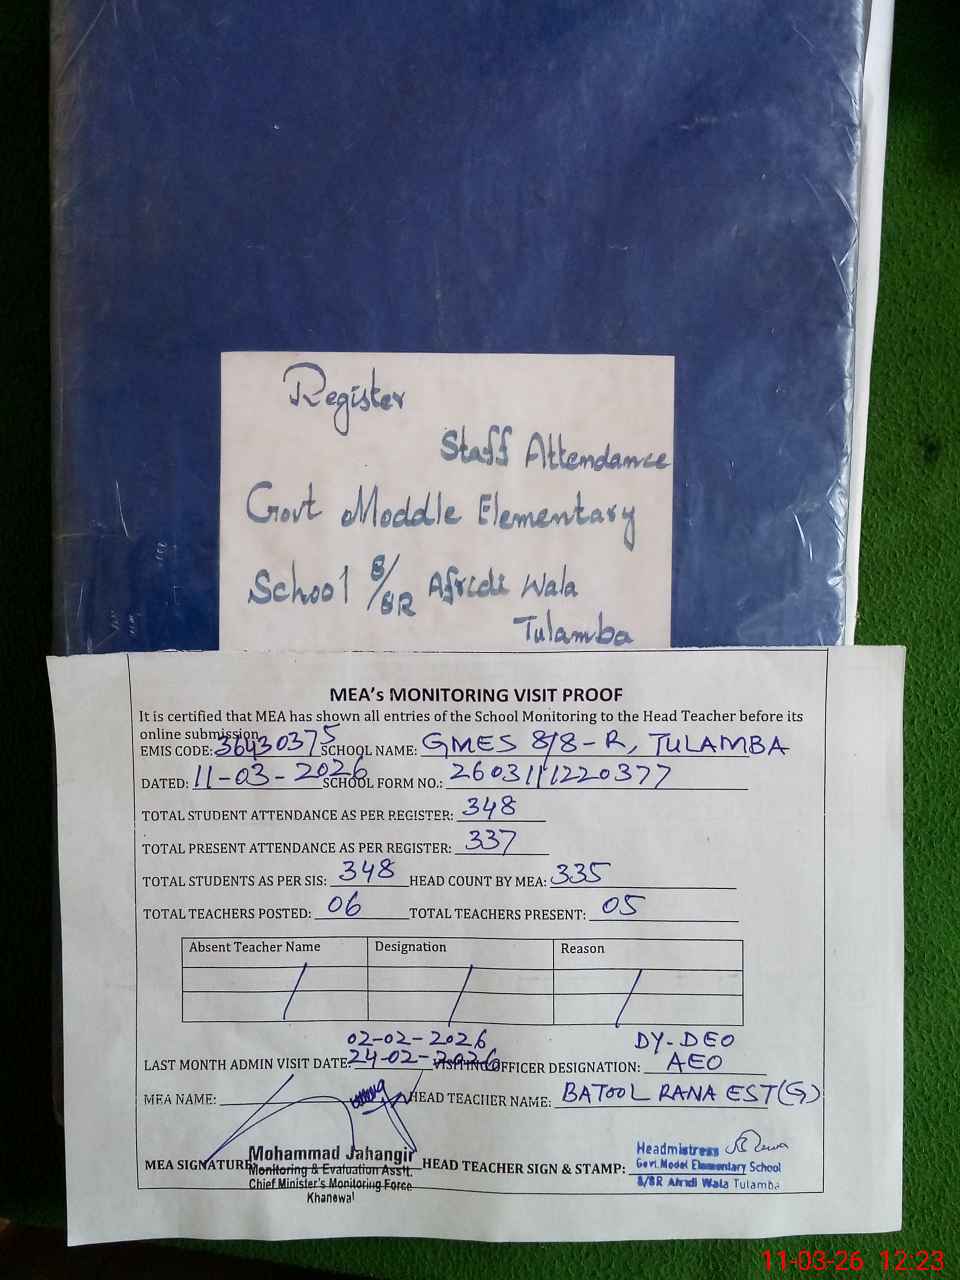 Register
Staff Attendance
Govt Moddle Elementary
School 8/8R Afridi Wala
Tulamba
MEA's MONITORING VISIT PROOF
It is certified that MEA has shown all entries of the School Monitoring to the Head Teacher before its
online submission
EMIS CODE: 36430375 SCHOOL NAME: GMES 8/8-R, TULAMBA
DATED: 11-03-2026 SCHOOL FORM NO.: 2603111220377
TOTAL STUDENT ATTENDANCE AS PER REGISTER: 348
TOTAL PRESENT ATTENDANCE AS PER REGISTER: 337
TOTAL STUDENTS AS PER SIS: 348 HEAD COUNT BY MEA: 335
TOTAL TEACHERS POSTED: 06 TOTAL TEACHERS PRESENT: 05
Absent Teacher Name Designation Reason
02-02-2026 DY-DEO
LAST MONTH ADMIN VISIT DATE: 24-02-2026 VISITING OFFICER DESIGNATION: AEO
MEA NAME: HEAD TEACHER NAME: BATOOL RANA EST(G)
MEA SIGNATURE: HEAD TEACHER SIGN & STAMP:
Mohammad Jahangir
Monitoring & Evaluation Asstt.
Chief Minister's Monitoring Force
Khanewal
Headmistress
Govt. Model Elementary School
8/8R Afridi Wala Tulamba
11-03-26 12:23